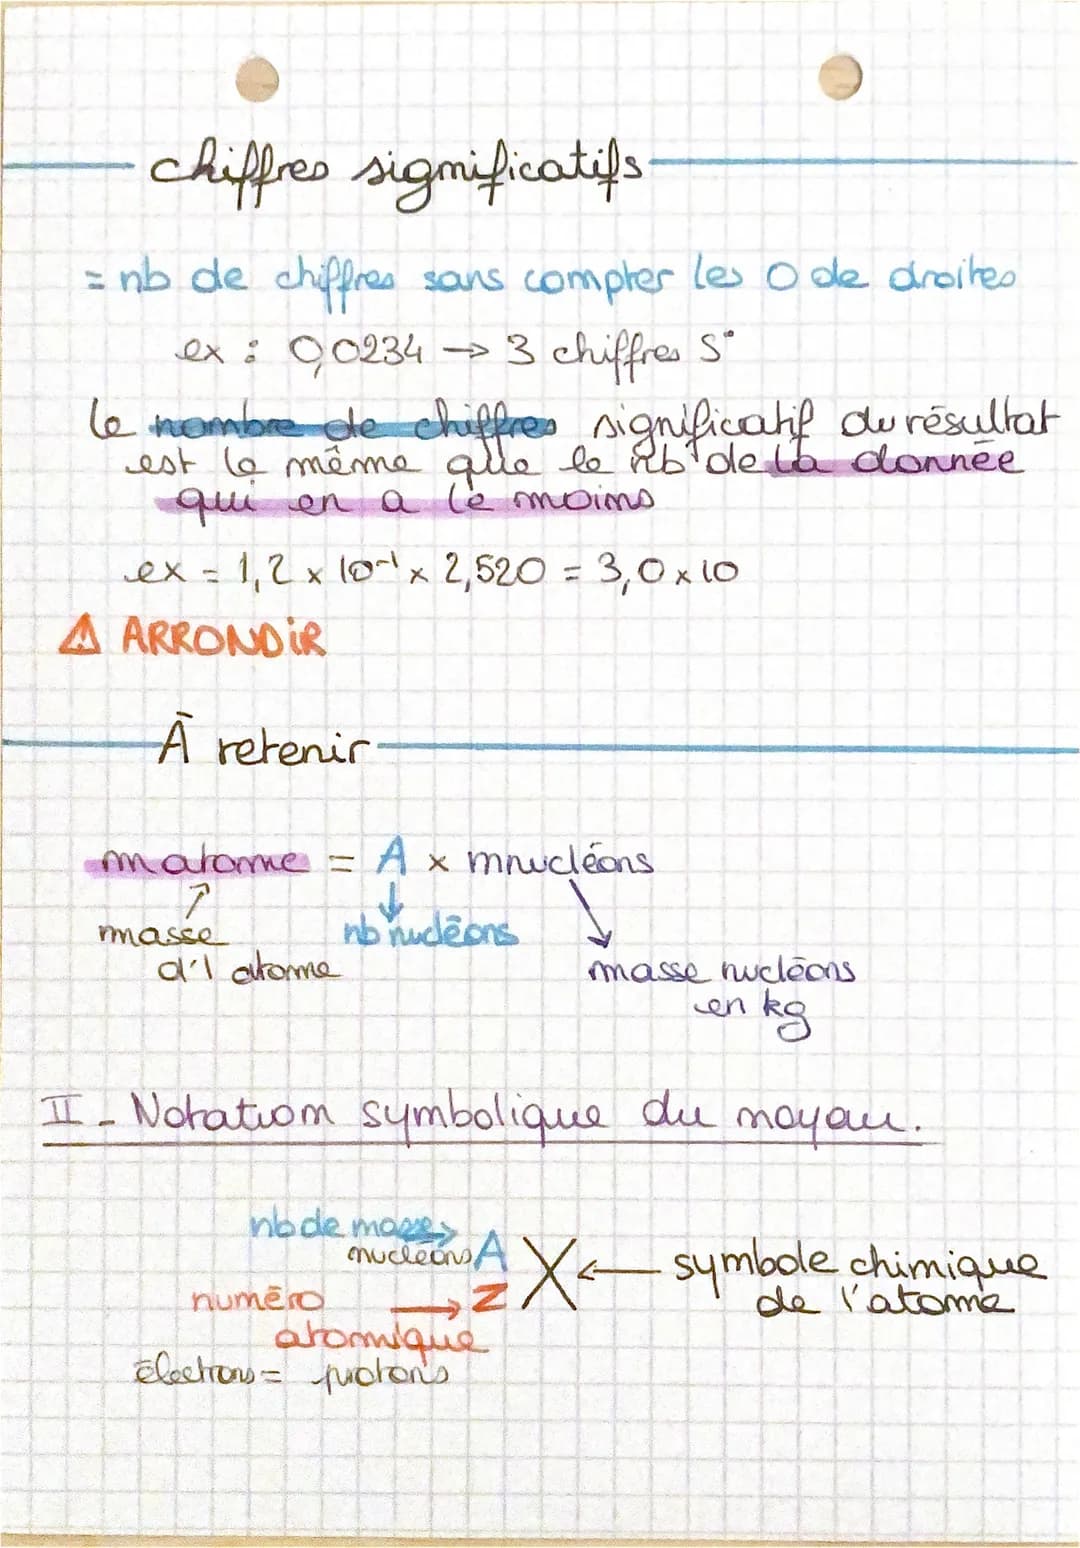 chiffres significatifs
= nb de chiffres sans compter les 0 de droites
ex : 0,0234 → 3 chiffres S°
le nombre de chiffres significatif du résultat
est le même que le nb de la donnée
qui en a le moins
ex = 1,2 x 10⁻¹ x 2,520 = 3,0 x 10
⚠ ARRONDIR
À retenir
m atome = A x mnucléons
masse nb nucléons
d'1 atome masse nucléons
en kg
II - Notation symbolique du noyau.
nb de masse → A
nucléons
X ← symbole chimique
de l'atome
numéro → Z
atomique
électrons = protons